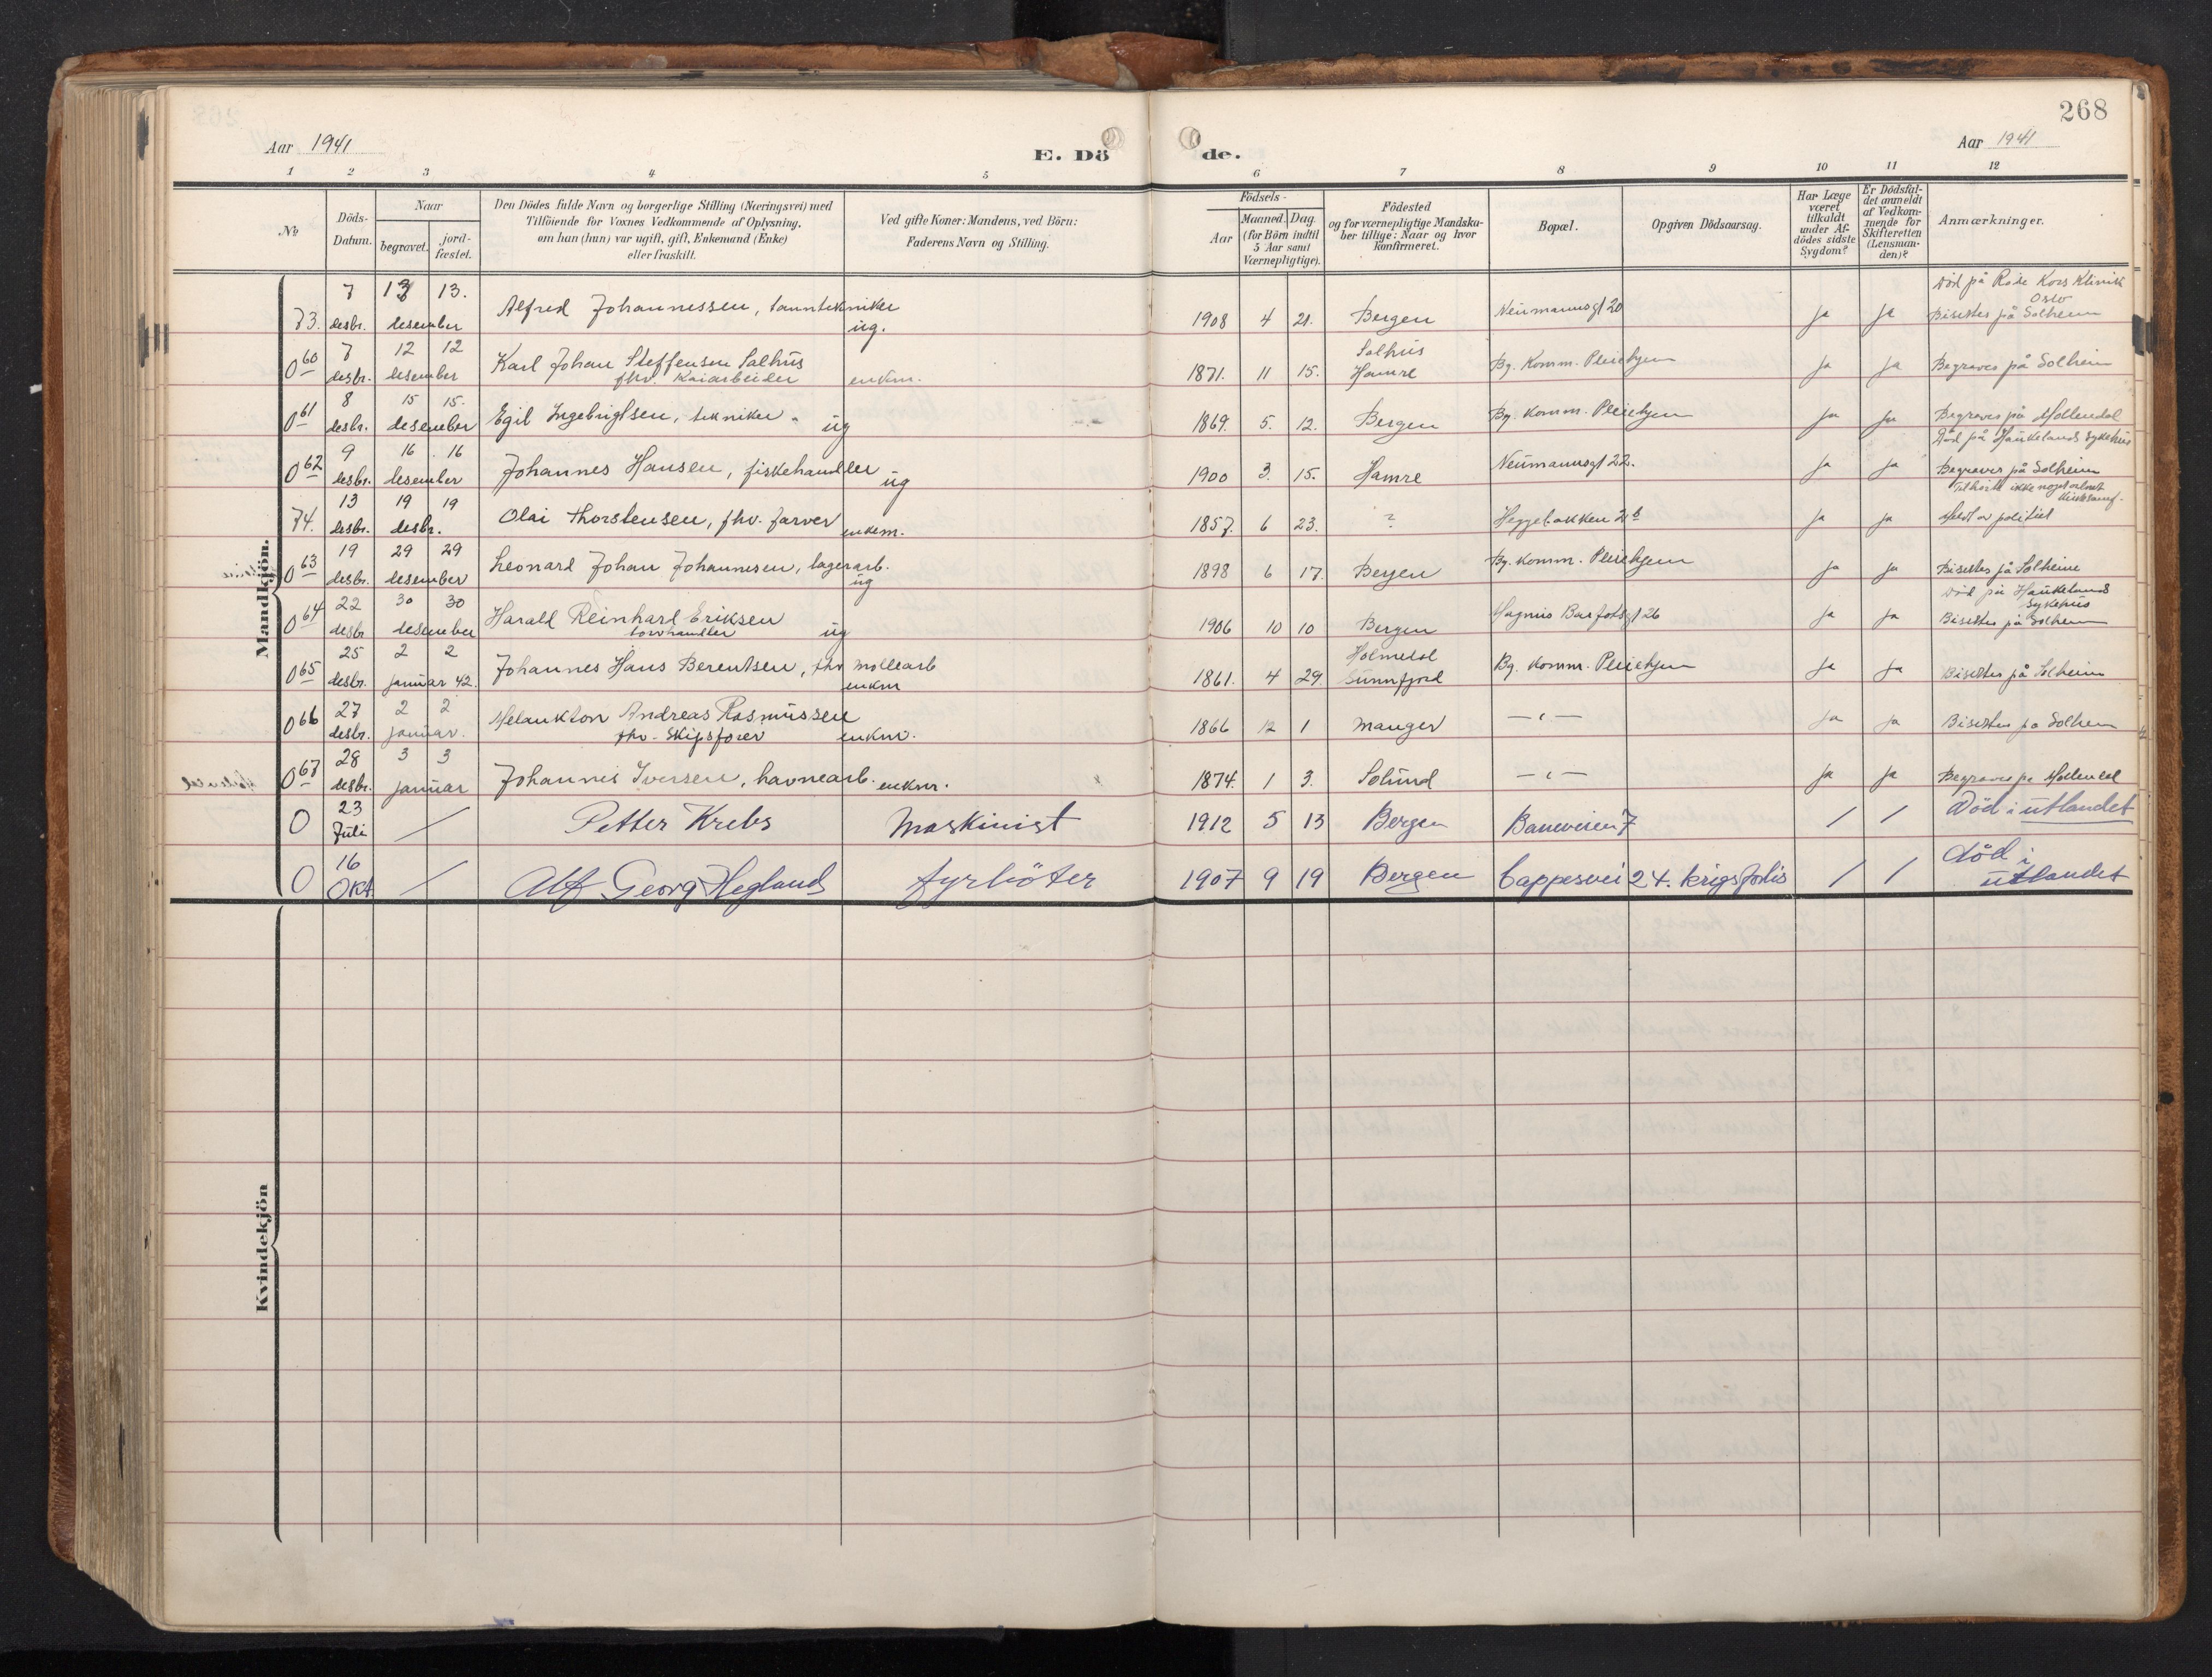 268
Aar 1941
E. Dö de.
Aar 1941
1 2 3 4 5 6 7 8 9 10 11 12
No
Döds-
Datum.
Naar
begravet.
jord-
fæstet.
Den Dödes fulde Navn og borgerlige Stilling (Næringsvei) med
Tilföiende for Voxnes Vedkommende af Oplysning,
om han (hun) var ugift, gift, Enkemand (Enke)
eller fraskilt.
Ved gifte Koner: Mandens, ved Börn:
Faderens Navn og Stilling.
Födsels-
Aar
Maaned. Dag.
(for Börn indtil
5 Aar samt
Værnepligtige).
Födested
og for værnepligtige Mandska-
ber tillige: Naar og hvor
konfirmeret.
Bopæl.
Opgiven Dödsaarsag.
Har Læge
været
tilkaldt
under Af-
dödes sidste
Sygdom?
Er Dödsfal-
det anmeldt
af Vedkom-
mende for
Skifteretten
(Lensman-
den)?
Anmærkninger.
Mandkjön.
73. 7 desbr. 13 13. desember Alfred Johannessen, tanntekniker ug. 1908 4 21. Bergen Neumannsgt 20 ja ja Död på Röde Kors Klinik Oslo
Bisettes på Solheim
0 60 7 desbr. 12 12 desember Karl Johan Steffensen Salhus
fhv. Kaiarbeider enkm. 1871. 11 15. Salhus Hamre Bg. Komm. Pleiehjem ja ja Begraves på Solheim
0 61 8 desbr. 15 15. desember Egil Ingebrigtsen, tekniker ug 1869. 5. 12. Bergen Bg. Komm. Pleiehjem ja ja Begraves på Möllendal
0 62 9 desbr. 16 16 desember Johannes Hansen, fiskehandler ug 1900 3. 15. Hamre Neumannsgt 22. ja ja Död på Haukelands sykehus
Begraves på Solheim
74. 13 desbr. 19 19 desbr. Olai Thorstensen, fhv. farver enkem. 1857. 6 23. ? Heggebakken 2 b ja ja Tilhörte ikke noget ordnet
kirkesamf.
Meldt av politiet
0 63 19 desbr. 29 29 desember Leonard Johan Johannesen, lagerarb. ug 1898 6 17. Bergen Bg. Komm. Pleiehjem ja ja Bisettes på Solheim
0 64 22 desbr 30 30 desember Harald Reinhard Eriksen
torvhandler ug 1906 10 10 Bergen Magnus Barfotsgt 26 ja ja Död på Haukelands
Sykehus
Bisettes på Solheim
0 65 25 desbr. 2 2 januar 42. Johannes Hans Berentsen, fhv möllearb enkm 1861. 4 29. Holmedal Sunnfjord Bg. Komm. Pleiehjem ja ja Bisettes på Solheim
0 66 27 desbr. 2 2 januar. Melankton Andreas Rasmussen
fhv. Skipsförer enkm. 1866 12 1 Manger — " — ja ja Bisettes på Solheim
0 67 28 desbr. 3 3 januar Johannes Iversen, havnearb. enkm. 1874. 1 3. Solund — " — ja ja Begraves på Möllendal
0 23 Juli / Petter Krebs Maskinist 1912 5 13 Bergen Baneveien 7 / / Död i utlandet
0 16 Okt / Alf Georg Hegland fyrböter 1907 9 19 Bergen Cappesvei 24. krigsforlis / / död i
utlandet
Kvindekjön